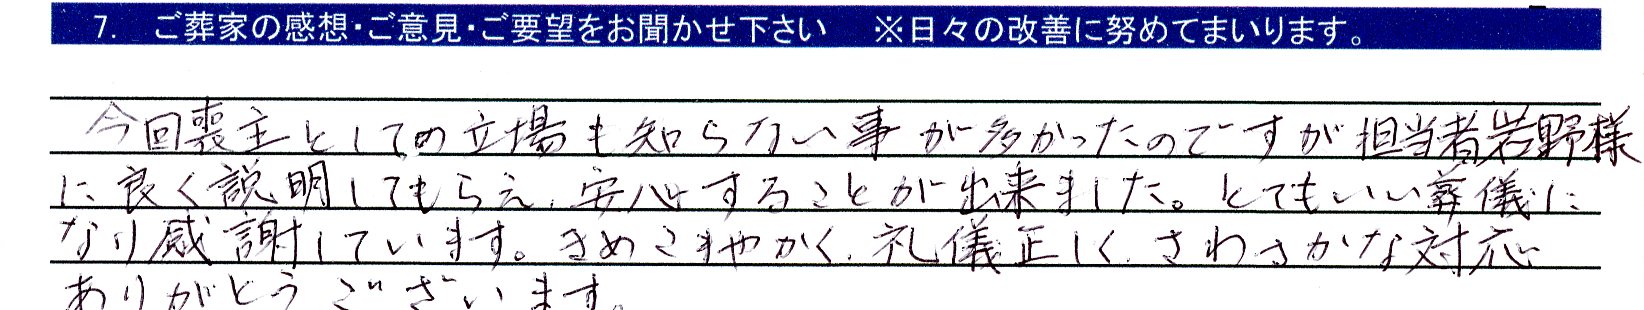 7. ご葬家の感想・ご意見・ご要望をお聞かせ下さい ※日々の改善に努めてまいります。
今回喪主としての立場も知らない事が多かったのですが担当者岩野様
に良く説明してもらえ、安心することが出来ました。とてもいい葬儀に
なり感謝しています。きめこまやかく、礼儀正しく、さわやかな対応
ありがとうございます。